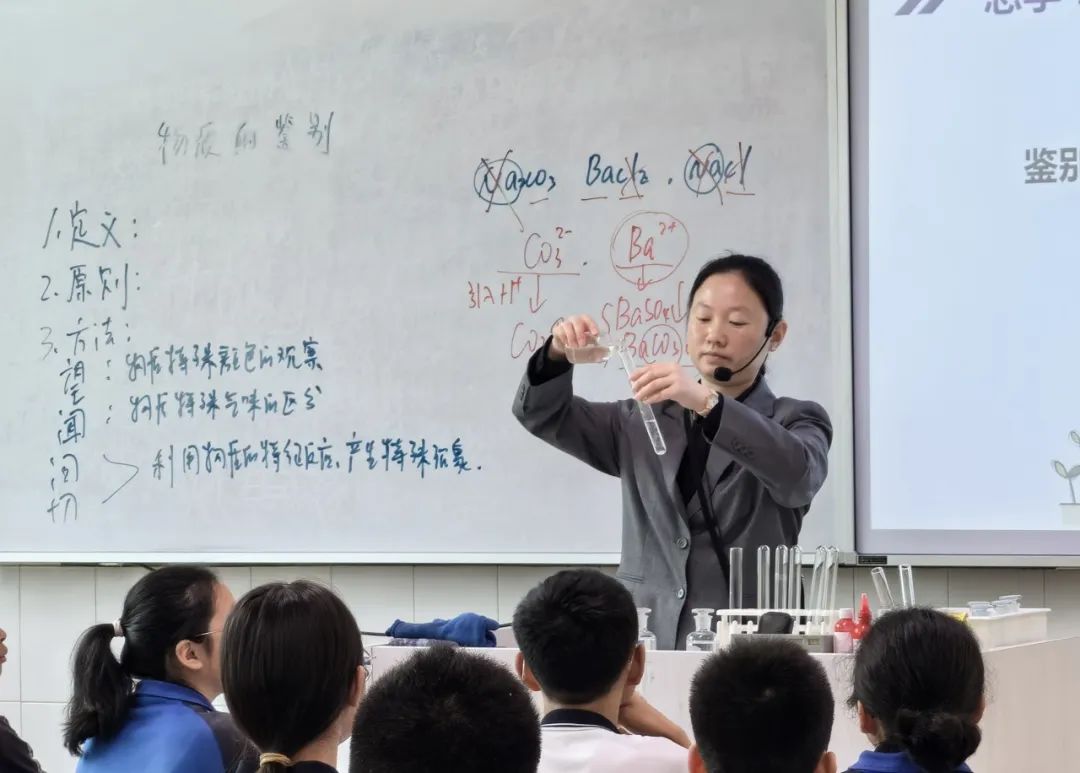 物质的鉴别
1.定义:
2.原则:
3.方法:
望:物质特殊颜色的观察
闻:物质特殊气味的区分
问
切
利用物质的特征反应,产生特殊现象.
Na₂CO₃ BaCl₂ . NaCl
CO₃²⁻ . Ba²⁺
引入H⁺
BaSO₄↓
BaCO₃
鉴别